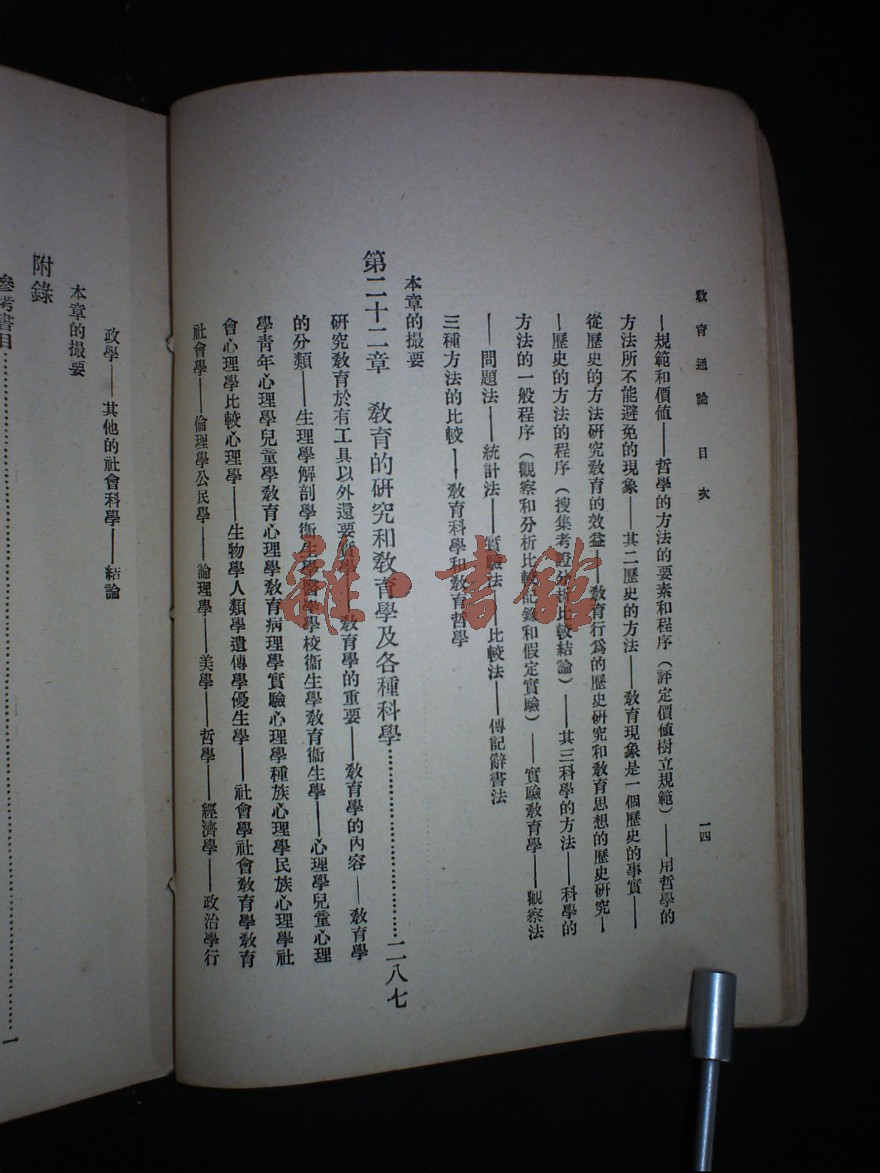 教育通論 目次 一四
—規範和價値——哲學的方法的要素和程序（評定價値樹立規範）——用哲學的
方法所不能避免的現象——其二歷史的方法——教育現象是一個歷史的事實——
從歷史的方法硏究教育的效益——教育行爲的歷史硏究和教育思想的歷史硏究—
—歷史的方法的程序（搜集考證分析比較結論）——其三科學的方法——科學的
方法的一般程序（觀察和分析比較記錄和假定實驗）——實驗教育學——觀察法
——問題法——統計法——實驗法——比較法——傳記辭書法
三種方法的比較——教育科學和教育哲學
本章的撮要
第二十二章 教育的硏究和教育學及各種科學……………………二八七
硏究教育於有工具以外還要——教育學的重要——教育學的內容——教育學
的分類——生理學解剖學衞生學醫學學校衞生學教育衞生學——心理學兒童心理
學靑年心理學兒童學教育心理學教育病理學實驗心理學種族心理學民族心理學社
會心理學比較心理學——生物學人類學遺傳學優生學——社會學社會教育學教育
社會學——倫理學公民學——論理學——美學——哲學——經濟學——政治學行
政學——其他的社會科學——結論
本章的撮要
附錄
參考書目……………………一
雜·書館